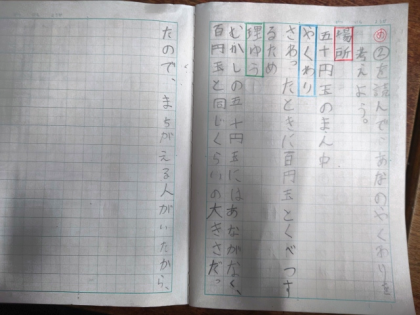 め ②を読んで、あなのやくわりを
考えよう。
場所
五十円玉のまん中
やくわり
さわったときに百円玉とくべつす
るため
理ゆう
むかしの五十円玉にはあながなく、
百円玉と同じくらいの大きさだっ
たので、まちがえる人がいたから、